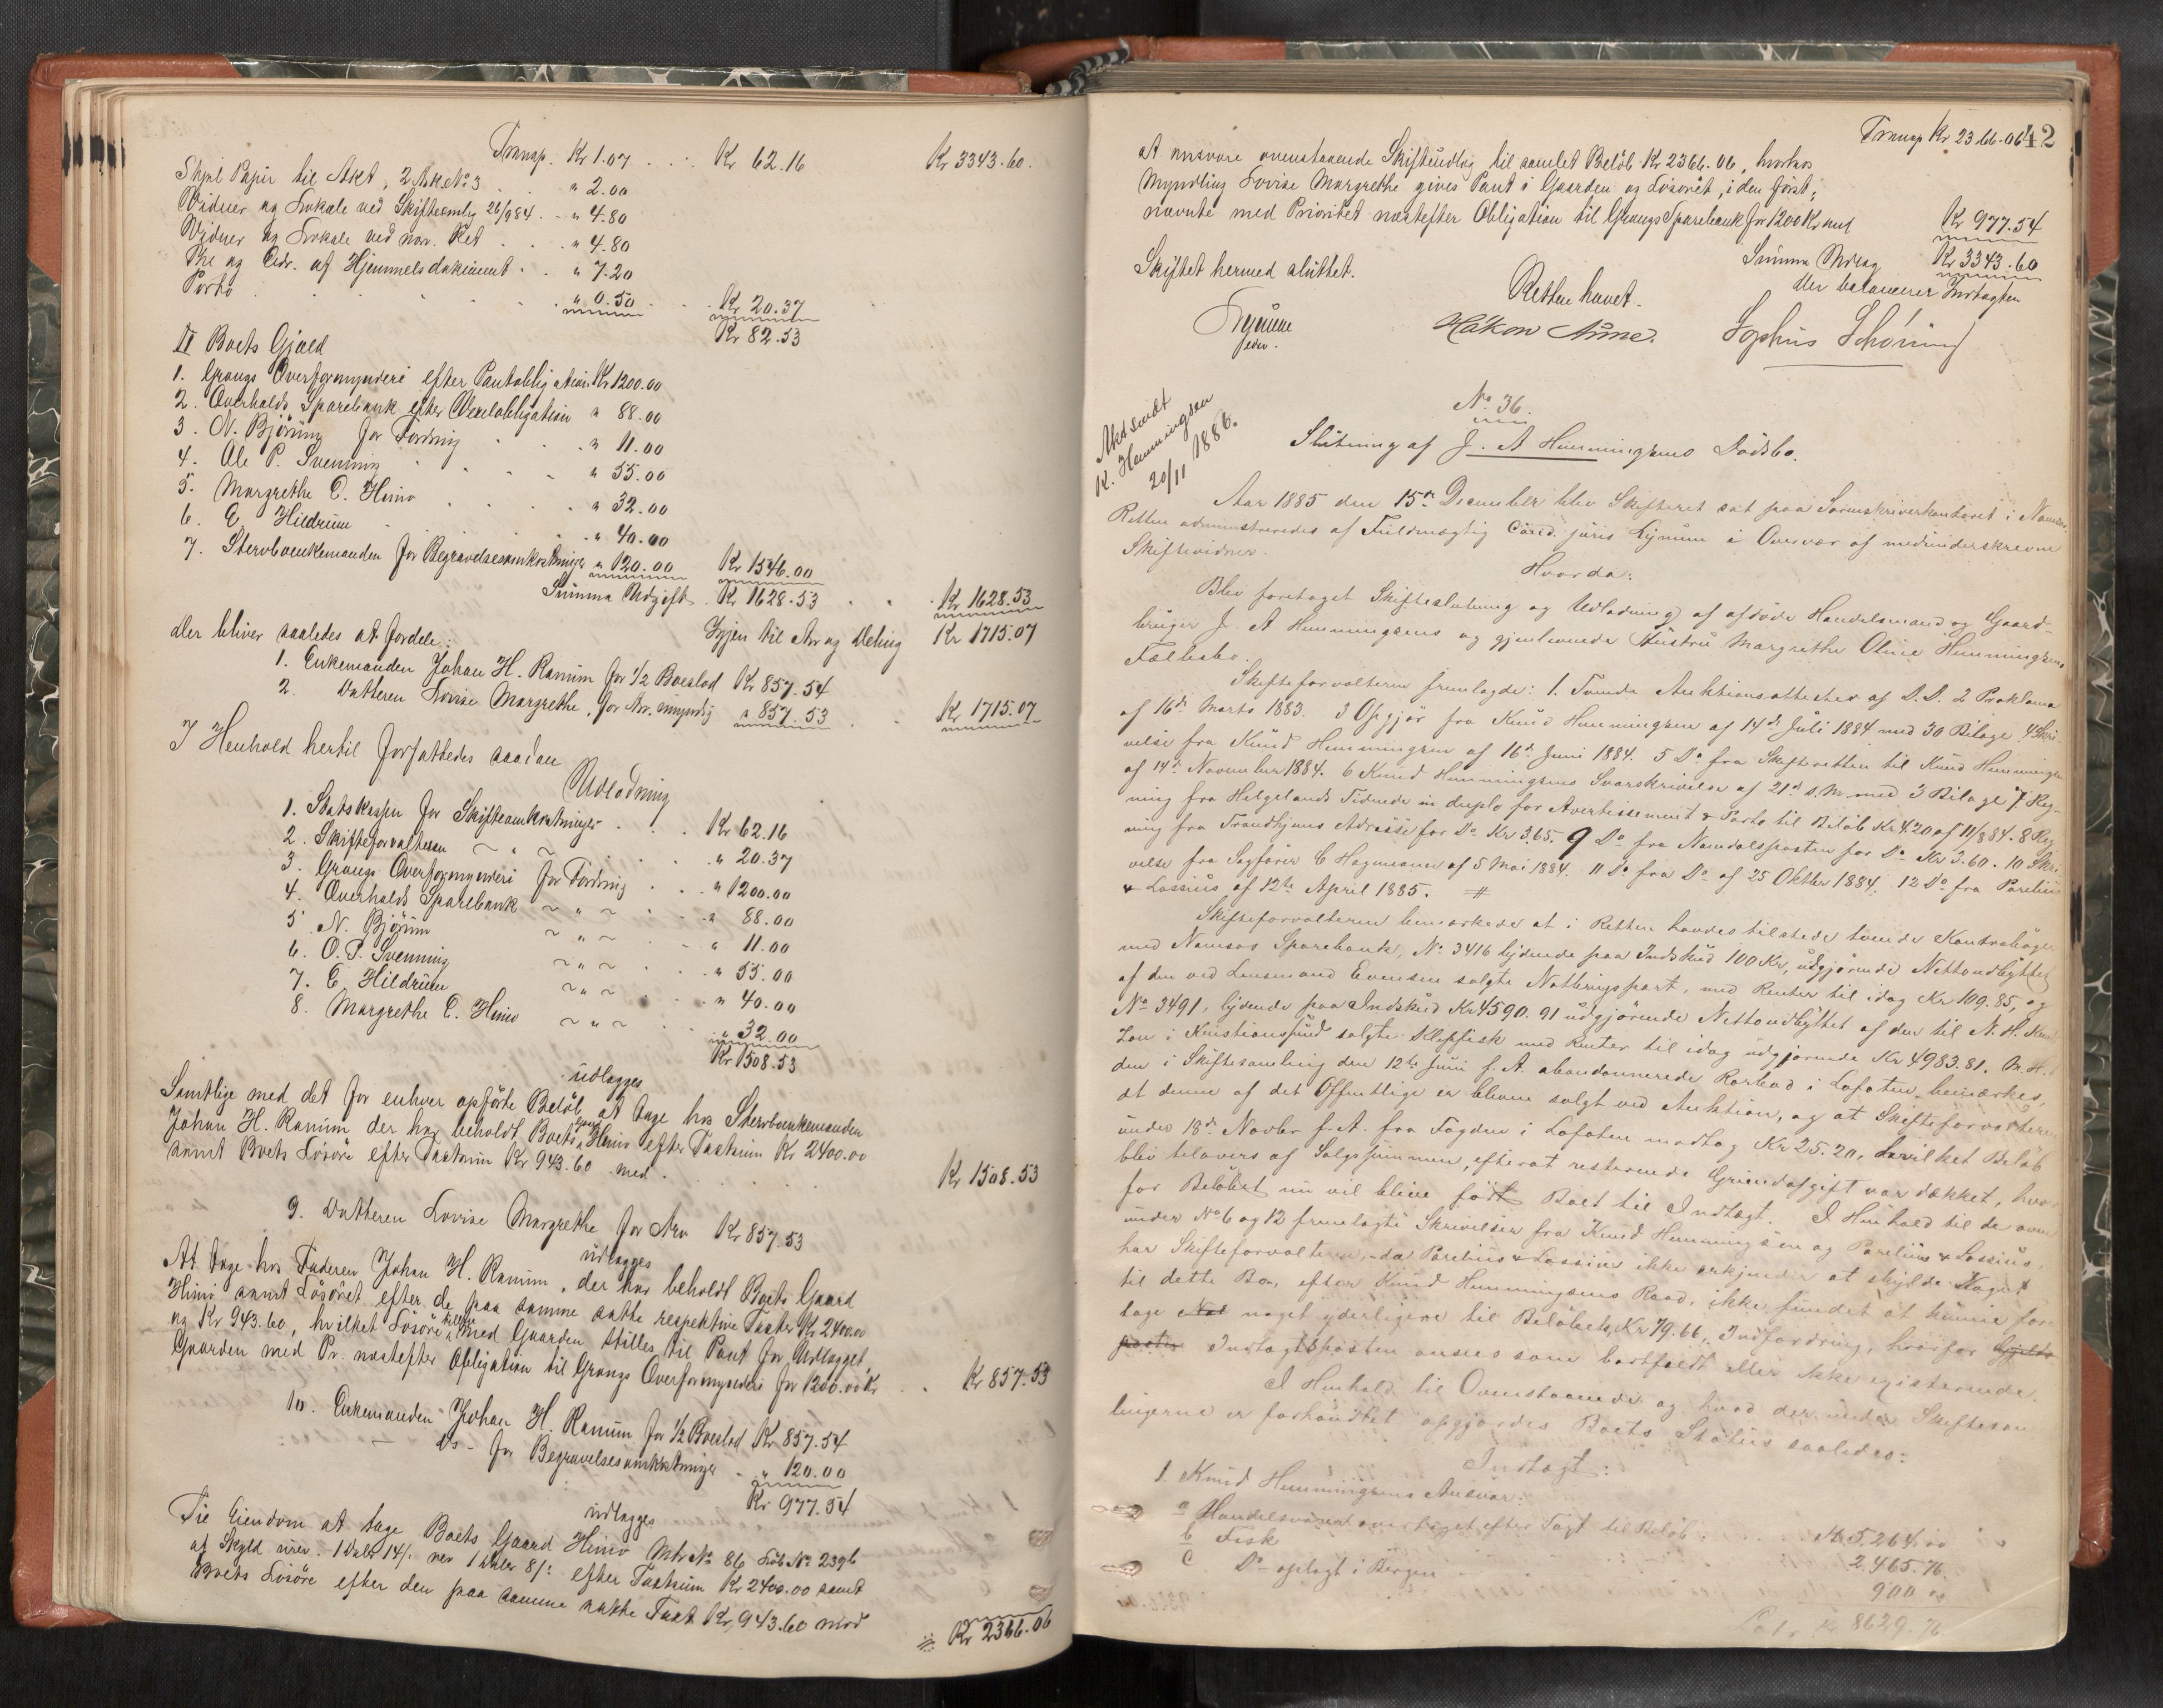 Transp. Kr 1.07 . . Kr 62.16 Kr 3343.60.
Stpl Papir til Akt, 2 Ark No 3 . . " 2.00
Vidner og Lokale ved Skiftesamlg 26/9 84 . - " 4.80
Vidner og Lokale ved nær. Ret . . . " 4.80
Skr og Vidr. af Hjemmelsdokument . . " 7.20
Porto . . . . " 0.50 . . Kr 20.37
Kr 82.53
II Boets Gjæld
1. Grongs Overformynderi efter Pantobligation Kr 1200.00
2. Overhalds Sparebank efter Vexelobligation " 88.00
3. N. Bjørum for Fordring . . " 11.00
4. Ole P. Svenning . . . " 55.00
5. Margrethe E. Himo . . . " 32.00
6. E. Hildrum . . . " 40.00
7. Stervboenkemanden for Begravelsesomkostninger " 120.00 Kr 1546.00
Summa Udgift . Kr 1628.53 . . Kr 1628.53
der bliver saaledes at fordele: Igjen til Arv og Deling Kr 1715.07
1. Enkemanden Johan H. Ranum for 1/2 Boeslod Kr 857.54
2. Datteren Lovise Margrethe, for Arv. umyndig " 857.53 . . Kr 1715.07
I Henhold hertil forfattedes saadan
Udlodning
1. Statskassen for Skifteomkostninger . . Kr 62.16
2. Skifteforvalteren ~ " ~ . . " 20.37
3. Grongs Overformynderi for Fordring . . " 1200.00
4. Overhalds Sparebank ~ " ~ . . " 88.00
5. N. Bjørum ~ " ~ . . " 11.00
6. O. P. Svenning ~ " ~ . . " 55.00
7. E. Hildrum ~ " ~ . . " 40.00
8. Margrethe E. Himo ~ " ~ . . " 32.00
Kr 1508.53
udlægges
Samtlige med det for enhver opførte Beløb at tage hos Stervboenkemanden
Johan H. Ranum der har beholdt Boets Gaard Himo efter Taxtsum Kr 2400.00
samt Boets Løsøre efter Taxtsum Kr 943.60 med . . . Kr 1508.53
9. Datteren Lovise Margrethe for Arv Kr 857.53
udlægges
At tage hos Faderen Johan H. Ranum, der har beholdt Boets Gaard
Himo samt Løsøret efter de paa samme satte respektive Taxter Kr 2400.00
og Kr 943.60, hvilket Løsøre tilligemed Gaarden stilles til Pant for Udlægget,
Gaarden med Pr. næstefter Obligation til Grongs Overformynderi for 1200.00 Kr . . Kr 857.53
10. Enkemanden Johan H. Ranum for 1/2 Boeslod Kr 857.54
— Ds – for Begravelsesomkostninger . " 120.00
Kr 977.54
udlægges
Til Eiendom at tage Boets Gaard Himo Mtr No 86 Løb No 239b
af Skyld urev. 1 Daler 14/. rev 1 Daler 8/: efter Taxtsum Kr 2400.00 samt
Boets Løsøre efter den paa samme satte Taxt Kr 943.60 mod
Kr 2366.06
Transp Kr 2366.06 42
at ansvare ovenstaaende Skifteudlæg til samlet Beløb Kr 2366.06, hvorhos
Myndling Lovise Margrethe gives Pant i Gaarden og Løsøret, i den først-
nævnte med Prioritet næstefter Obligation til Grongs Sparebank for 1200 Kr med Kr 977.54
Summa Udlæg Kr 3343.60
der balancerer Indtægten
Skiftet hermed sluttet.
Retten hævet.
Lynum
edsv.
Håkon Aune.
Sophus Schöning
Akt sendt
K. Henningsen
20/11 1886.
No 36.
Slutning af J. A Hemmingsens Dödsbo.
Aar 1885 den 15de December blev Skifteret sat paa Sorenskriverkontoret i Namsos.
Retten administreredes af Fuldmægtig Cand. juris Lynum i Overvær af medunderskrevne
Skiftevidner.
Hvorda:
Blev foretaget Skifteslutning og Udlodning af afdøde Handelsmand og Gaard-
bruger J. A Hemmingsens og gjenlevende Hustru Margrethe Oline Hemmingsens
Fællesbo.
Skifteforvalteren fremlagde: 1. Tvende Auktionsattester af D.D. 2 Proklama
af 16de Marts 1883. 3 Opgjör fra Knud Hemmingsen af 14de Juli 1884 med 30 Bilage. 4 Skri-
velse fra Knud Hemmingsen af 16de Juni 1884. 5 Do fra Skifteretten til Knud Hemmingsen
af 14de November 1884. 6 Knud Hemmingsens Svarskrivelse af 21de s. M med 3 Bilage 7 Reg-
ning fra Helgelands Tidende in duplo for Avertissement & Porto til Beløb Kr 4.20 af 11/8 84. 8 Reg
ning fra Trondhjems Adresse for Do Kr 3.65. 9 Do fra Namdalsposten for Do Kr 3.60. 10 Skri-
velse fra Sagfører C Hagemann af 5 Mai 1884. 11 Do fra Do af 25 Oktbr 1884. 12 Do fra Parelius
& Lossius af 12te April 1885. #
Skifteforvalteren bemærkede at i Retten havdes tilstede tvende Kontrabøger
med Namsos Sparebank, No 3416 lydende paa Indskud 100 Kr, udgjørende Nettoudbyttet
af den ved Lensmand Evensen solgte Notbringspart, med Renter til idag Kr 109.85, og
No 3491, lydende paa Indskud Kr 4590.91 udgjørende Nettoudbyttet af den til N. H. Knud
tzon i Kristiansund solgte Klipfisk med Renter til idag udgjørende Kr 4983.81. M. H. t
den i Skiftesamling den 12te Juni f. A. abandonnerede Rorbod i Lofoten bemærkes,
at denne af det Offentlige er bleven solgt ved Auktion, og at Skifteforvalteren
under 18de Novbr f. A. fra Fogden i Lofoten modtog Kr 25.20, hvilket Beløb
blev tilovers af Salgssummen, efterat resterende Grundafgift var dækket, hvor
for Beløbet nu vil blive ført Boet til Indtægt. I Henhold til de oven
under No 6 og 12 fremlagte Skrivelser fra Knud Hemmingsen og Parelius & Lossius,
har Skifteforvalteren, da Parelius & Lossius ikke erkjender at skylde Noget
til dette Bo, efter Knud Hemmingsens Raad, ikke fundet at kunne fore-
tage noget yderligere til Beløbets, Kr 79.66, Indfordring, hvorfor
Indtægtsposten ansees som bortfaldt eller ikke existerende.
I Henhold til Ovenstaaende og hvad der under Skiftesam
lingerne er forhandlet opgjordes Boets Status saaledes:
Indtægt:
1. Knud Hemmingsens Ansvar:
a Handelsvarer overtaget efter Taxt til Beløb . Kr 5,264.00
b Fisk 2.465.76.
c Do oplagt i Bergen 900 00
Latr. Kr 8629.76